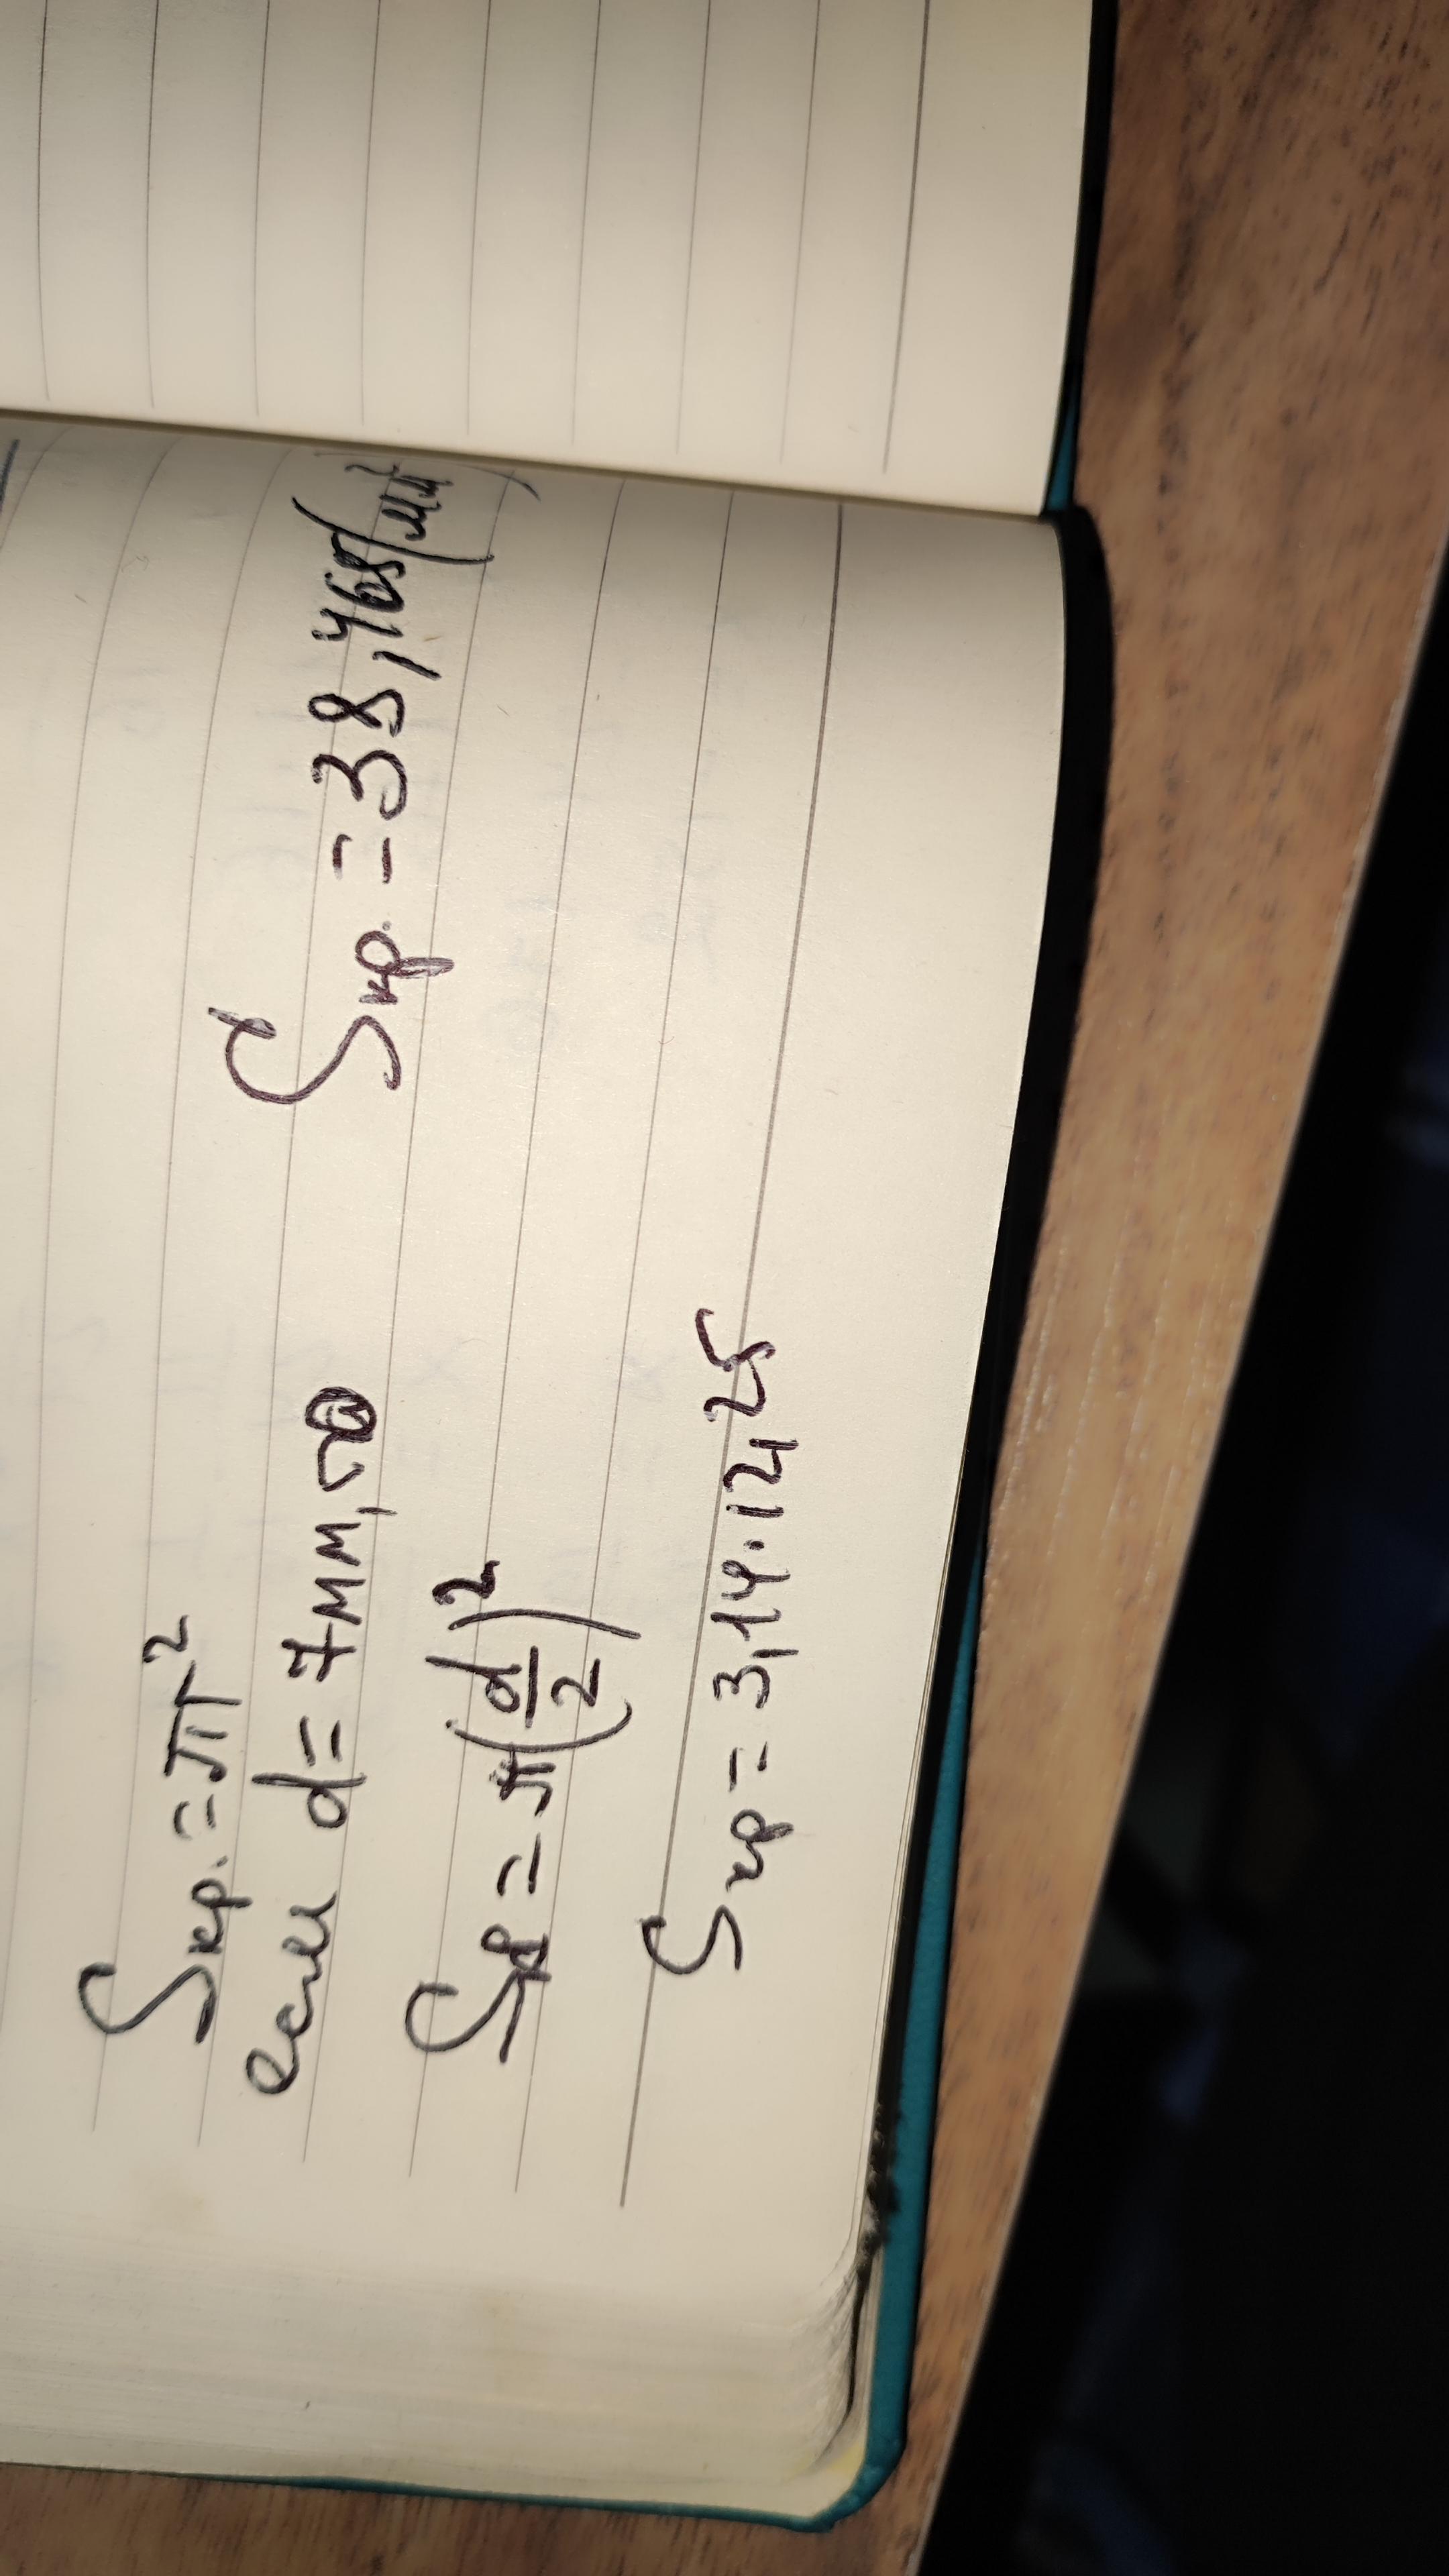 Sкр. = πr²
если d = 7мм, то
Sкр = π(d/2)²
Sкр = 3,14·12,25
Sкр. = 38,465(мм²)